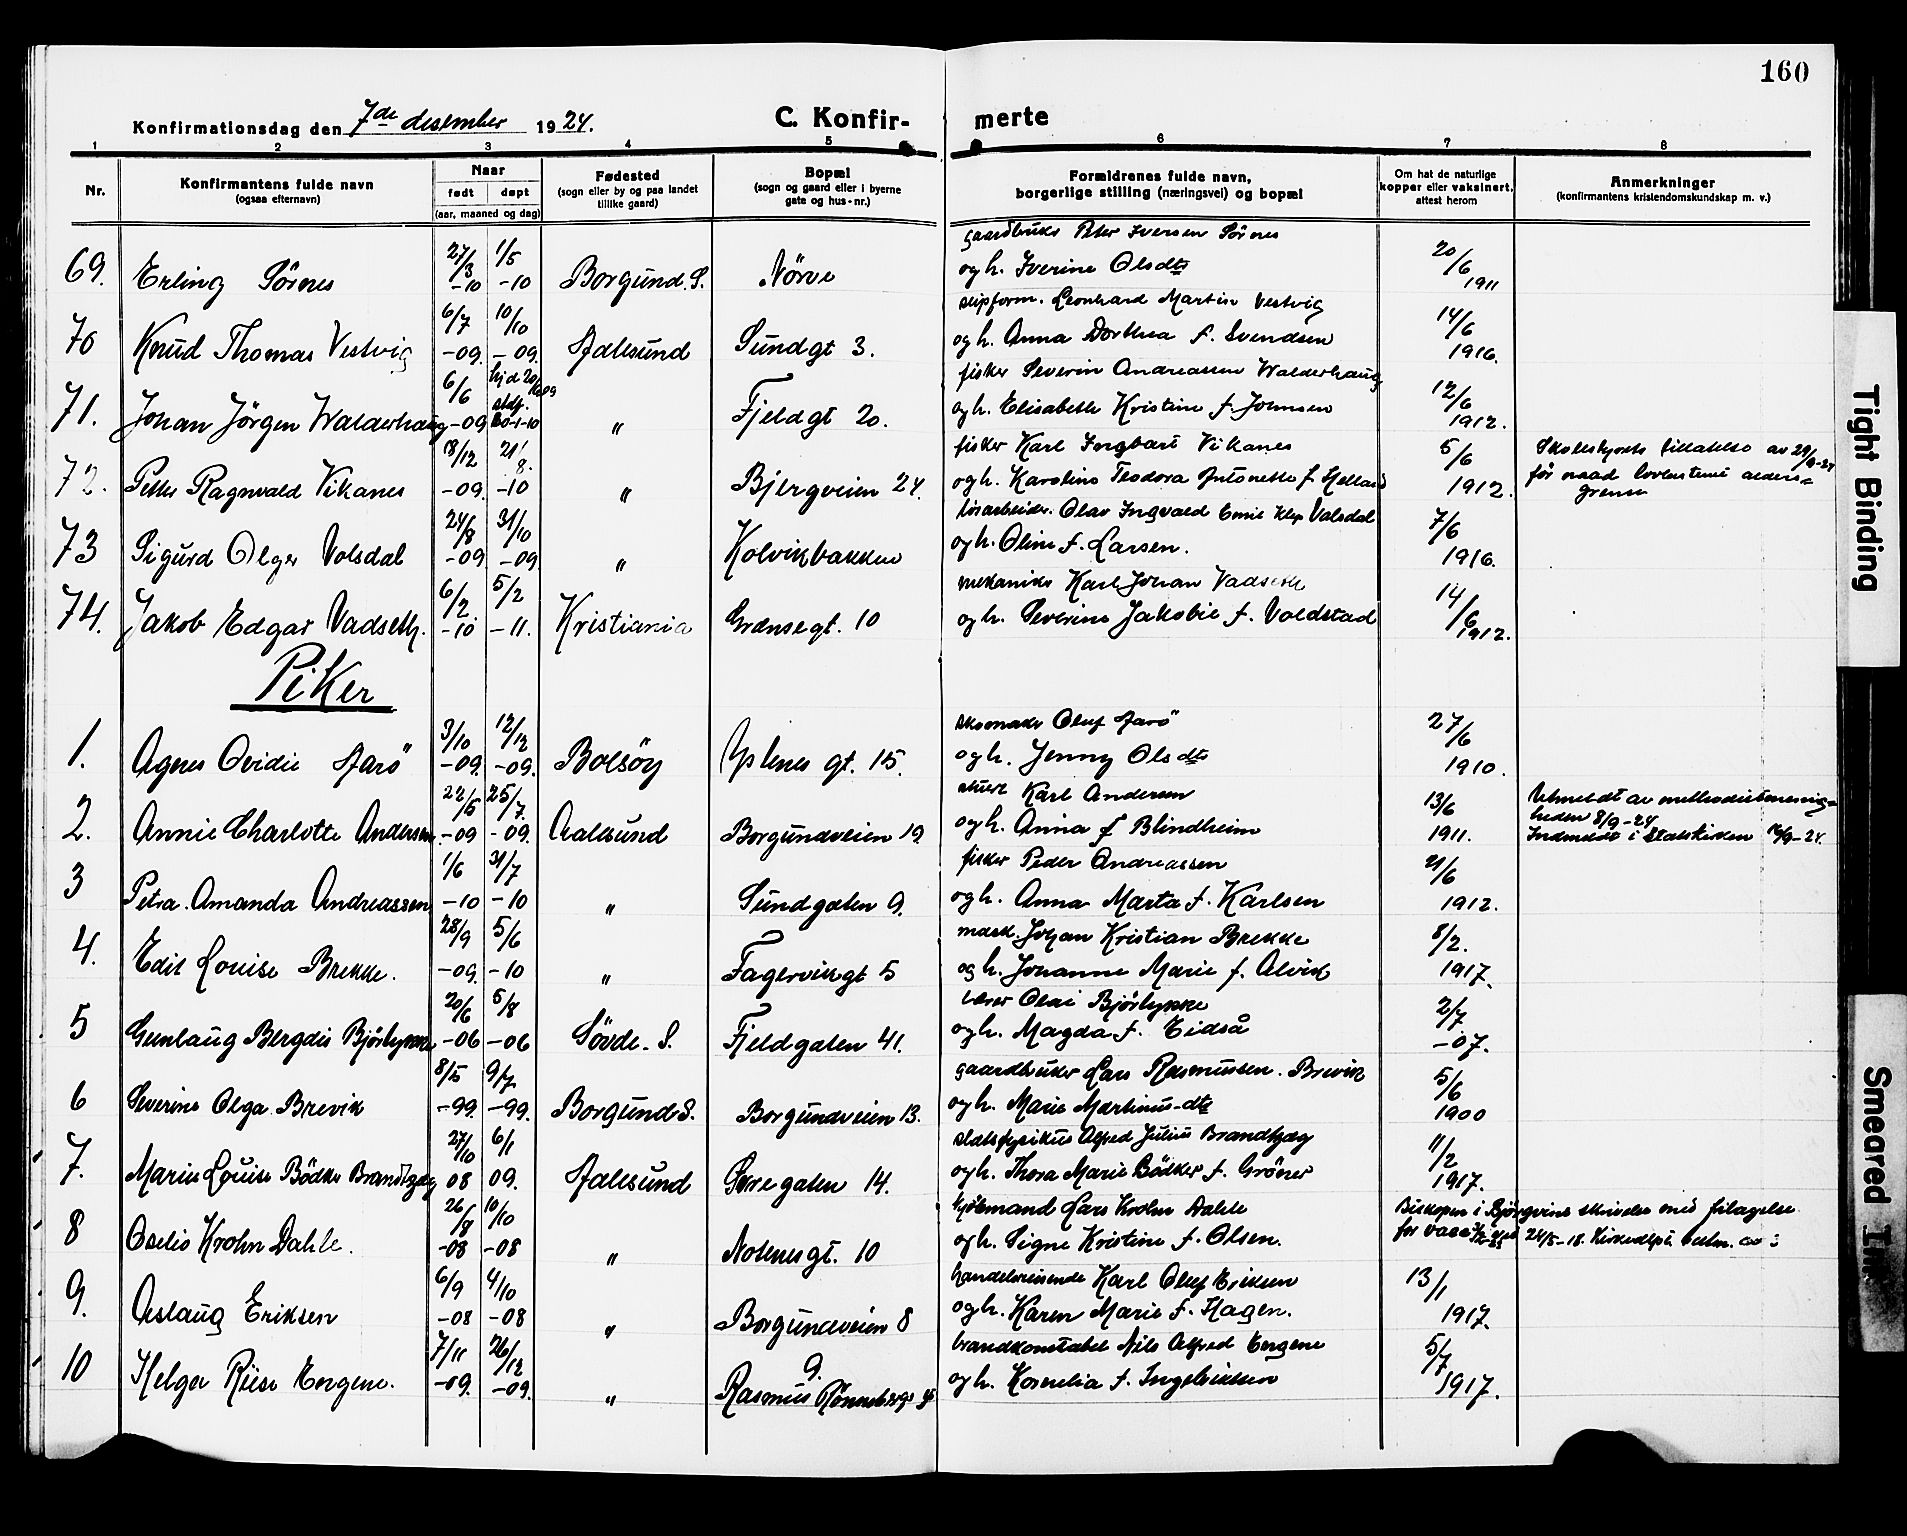 160
Konfirmationsdag den 7de desember 1924.
C. Konfirmerte
1 2 3 4 5 6 7 8
Nr.
Konfirmantens fulde navn
(ogsaa efternavn)
Naar
født døpt
(aar, maaned og dag)
Fødested
(sogn eller by og paa landet
tillike gaard)
Bopæl
(sogn og gaard eller i byerne
gate og hus-nr.)
Forældrenes fulde navn,
borgerlige stilling (næringsvei) og bopæl
Om hat de naturlige
kopper eller vaksinert,
attest herom
Anmerkninger
(konfirmantens kristendomskundskap m. v.)
gaardbruker Peter Iversen Sörnes
69. Erling Sörnes 27/3 -10 1/5 -10 Borgund. S. Nörve og h. Iverine Olsdtr 20/6 1911
slipform. Leonhard Martin Vestvig
70 Knud Thomas Vestvig 6/7 -09. 10/10 -09. Aalesund Sundgt 3. og h. Anna Dorthea f. Svendsen 14/6 1916.
fisker Severin Andreassen Walderhaug
71. Johan Jörgen Walderhaug 6/6 -09 hjd 20-1-10 " Fjeldgt 20. og h. Elisabeth Kristine f. Johnsen 12/6 1912.
fisker Karl Ingvart Vikanes
72. Petter Ragnvald Vikanes 18/12 -09. 21/8. -10 " Bjergveien 24. og h. Karoline Teodora Antonette f. Helland 5/6 1912.
Skolestyrets tillatelse av 29/9-24
før naad lovbestemt alders=
grense
løsarbeider. Olav Ingvald Emil Klep Valsdal
73 Sigurd Olger Volsdal 24/8 -09 31/10 -09. " Kolvikbakken og h. Oline f. Larsen. 7/6 1916.
mekaniker Karl Johan Vadseth
74. Jakob Edgar Vadseth. 6/2 -10 5/2 -11. Kristiania Grænsegt. 10 og h. Severine Jakobie f. Voldstad 14/6 1912.
Piker
skomaker Oluf Aarö
1. Agnes Ovidie Aarö 3/10 -09. 12/12 -09. Bolsöy Ystenes gt. 15. og h. Jenny Olsdtr 27/6 1910.
stuert Karl Andersen
2. Annie Charlotte Andersen. 22/5 -09 25/7. -09. Aalesund Borgundveien 19. og h. Anna f Blindheim 13/6 1911.
Utmeldt av methodistmenig=
heden 8/9-24
Indmeldt i Statskirken 16/9-24.
fisker Peder Andreassen
3 Petra. Amanda Andreassen 1/6 -10 31/7 -10 " Sundgaten 9. og h. Anna Marta f. Karlsen 21/6 1912.
mask. Johan Kristian Brekke
4. Edit Louise Brekke. 28/9 -09. 5/6 -10 " Fagervikgt 5 og h. Johanne Marie f. Alvik 8/2. 1917.
lærer Olai Bjørlykke
5 Gunlaug Bergdis Bjørlykke 20/6 -06 5/8 -06 Sövde. S. Fjeldgaten 41. og h. Magda f. Eidså 2/7 -07.
gaardbruker Lars Rasmussen. Brevik
6 Severine Olga Brevik 8/5 -99. 9/7 -99. Borgund S. Borgundveien 13. og h. Marie Martinus-dtr 5/6 1900
statsfysikus Alfred Julius Brandtzæg
7. Marie Louise Bödker Brandtzæg 27/10 08 6/1 09. Aalesund Storegaten 14. og h. Thora Marie Bödker f. Gröner 11/2 1917.
kjøbmand Lars Krohn Dahle
8 Oselio Krohn Dahle. 26/8 -08 10/10 -08 " Notenesgt. 10 og h. Signe Kristine f. Olsen.
Biskopen i Bjørgvins skrivelse med fitagelse
for vacc. 24/5-18. Kirkedept.
handelsreisende Karl Oluf Eriksen
9. Aslaug Eriksen 6/9 -08 4/10 -08 " Borgundveien 8 og h. Karen Marie f. Hagen. 13/1 1917.
brandkonstabel Nils Alfred Engene
10 Helga Riise Engene. 7/11 -09. 26/12 -09. " Rasmus Rønnebergs gt 9. og h. Kornelia f. Ingebriktsen 5/7 1917.
Tight Binding
Smeared Ink